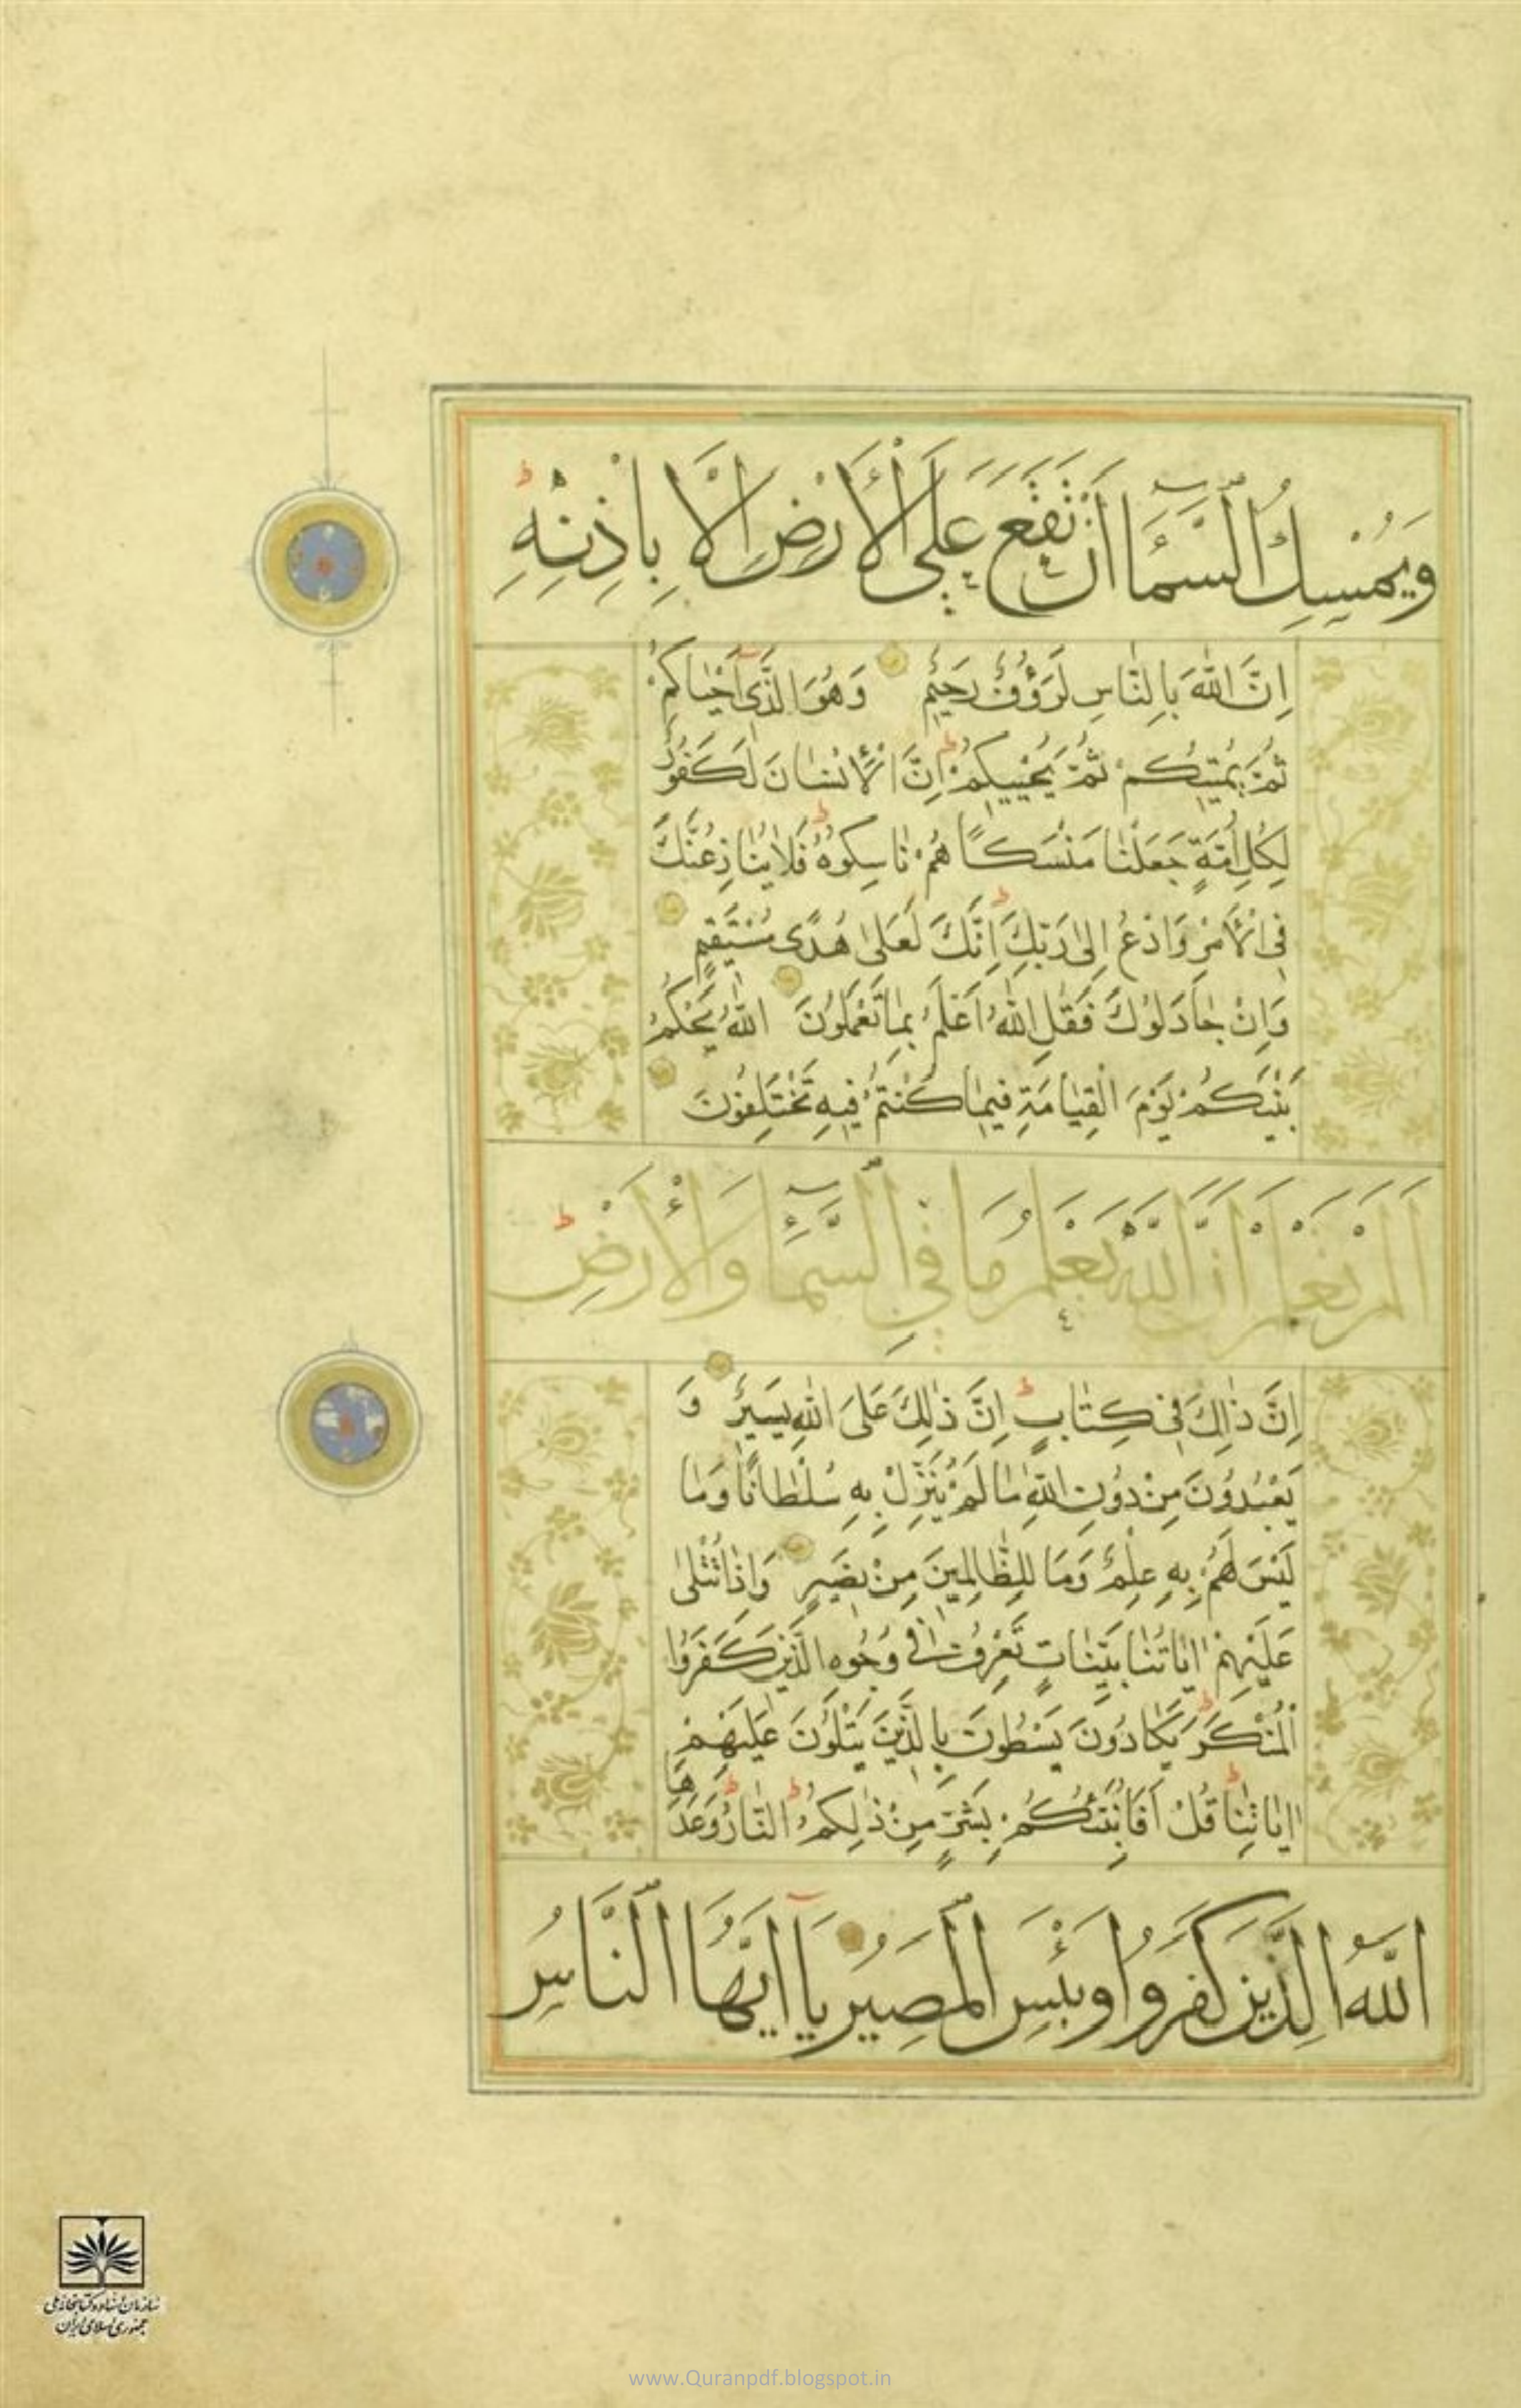 وَيُمْسِكُ السَّمَاءَ أَنْ تَقَعَ عَلَى الْأَرْضِ إِلَّا بِإِذْنِهِ
اِنَّ اللّٰهَ بِالنَّاسِ لَرَؤُفٌ رَحِيمٌ وَهُوَ الَّذِى اَحْيَاكُمْ
ثُمَّ يُمِيتُكُمْ ثُمَّ يُحْيِيكُمْ اِنَّ الْاِنْسَانَ لَكَفُورٌ
لِكُلِّ اُمَّةٍ جَعَلْنَا مَنْسَكًا هُمْ نَاسِكُوهُ فَلَا يُنَازِعُنَّكَ
فِى الْاَمْرِ وَادْعُ اِلَىٰ رَبِّكَ اِنَّكَ لَعَلىٰ هُدًى مُسْتَقِيمٍ
وَاِنْ جَادَلُوكَ فَقُلِ اللّٰهُ اَعْلَمُ بِمَا تَعْمَلُونَ اللّٰهُ يَحْكُمُ
بَيْنَكُمْ يَوْمَ الْقِيَامَةِ فِيمَا كُنْتُمْ فِيهِ تَخْتَلِفُونَ
اَلَمْ تَعْلَمْ اَنَّ اللّٰهَ يَعْلَمُ مَا فِي السَّمَاءِ وَالْأَرْضِ
اِنَّ ذٰلِكَ فِى كِتَابٍ اِنَّ ذٰلِكَ عَلَى اللّٰهِ يَسِيرٌ وَ
يَعْبُدُونَ مِنْ دُونِ اللّٰهِ مَا لَمْ يُنَزِّلْ بِهِ سُلْطَانًا وَمَا
لَيْسَ لَهُمْ بِهِ عِلْمٌ وَمَا لِلظَّالِمِينَ مِنْ نَصِيرٍ وَاِذَا تُتْلىٰ
عَلَيْهِمْ اٰيَاتُنَا بَيِّنَاتٍ تَعْرِفُ فِى وُجُوهِ الَّذِينَ كَفَرُوا
الْمُنْكَرَ يَكَادُونَ يَسْطُونَ بِالَّذِينَ يَتْلُونَ عَلَيْهِمْ
اٰيَاتِنَا قُلْ اَفَاُنَبِّئُكُمْ بِشَرٍّ مِنْ ذٰلِكُمُ النَّارُ وَعَدَهَا
اللّٰهُ الَّذِينَ كَفَرُوا وَبِئْسَ الْمَصِيرُ يَا اَيُّهَا النَّاسُ
سازمان اسناد و کتابخانه ملی
جمهوری اسلامی ایران
www.Quranpdf.blogspot.in